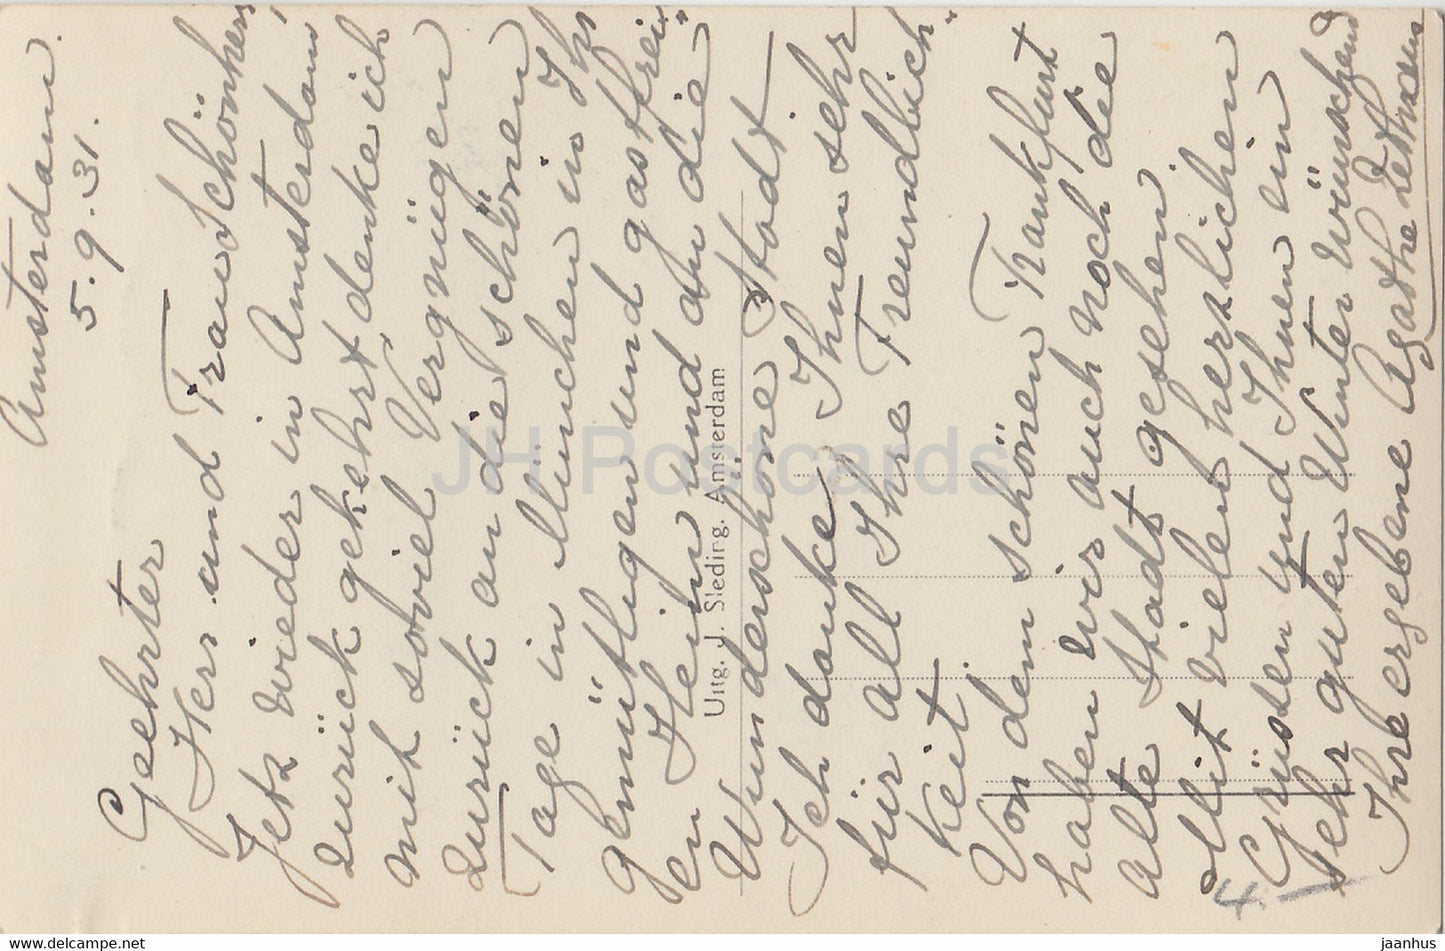 Amsterdam.
5.9.31.
Geehrter
Herr und Frau Schönherr
Jetz wieder in Amsterdam
zurück gekehrt denke ich
mit soviel Vergnügen
zurück an die schönen
Tage in München in Ihr
gemütligen und gastfrei-
en Heim und an die
Wunderschöne Stadt.
Ich danke Ihnen sehr
für all Ihre Freundlich-
keit.
Von dem schönen Frankfurt
haben wir auch noch die
alte Stadt gesehen.
Mit vielen herzlichen
Grüsen und Ihnen ein
sehr guten Winter wünschend
Ihre ergebene Agathe
4.-
Uitg. J. Sleding. Amsterdam
JH Postcards
www.delcampe.net
jaanhus